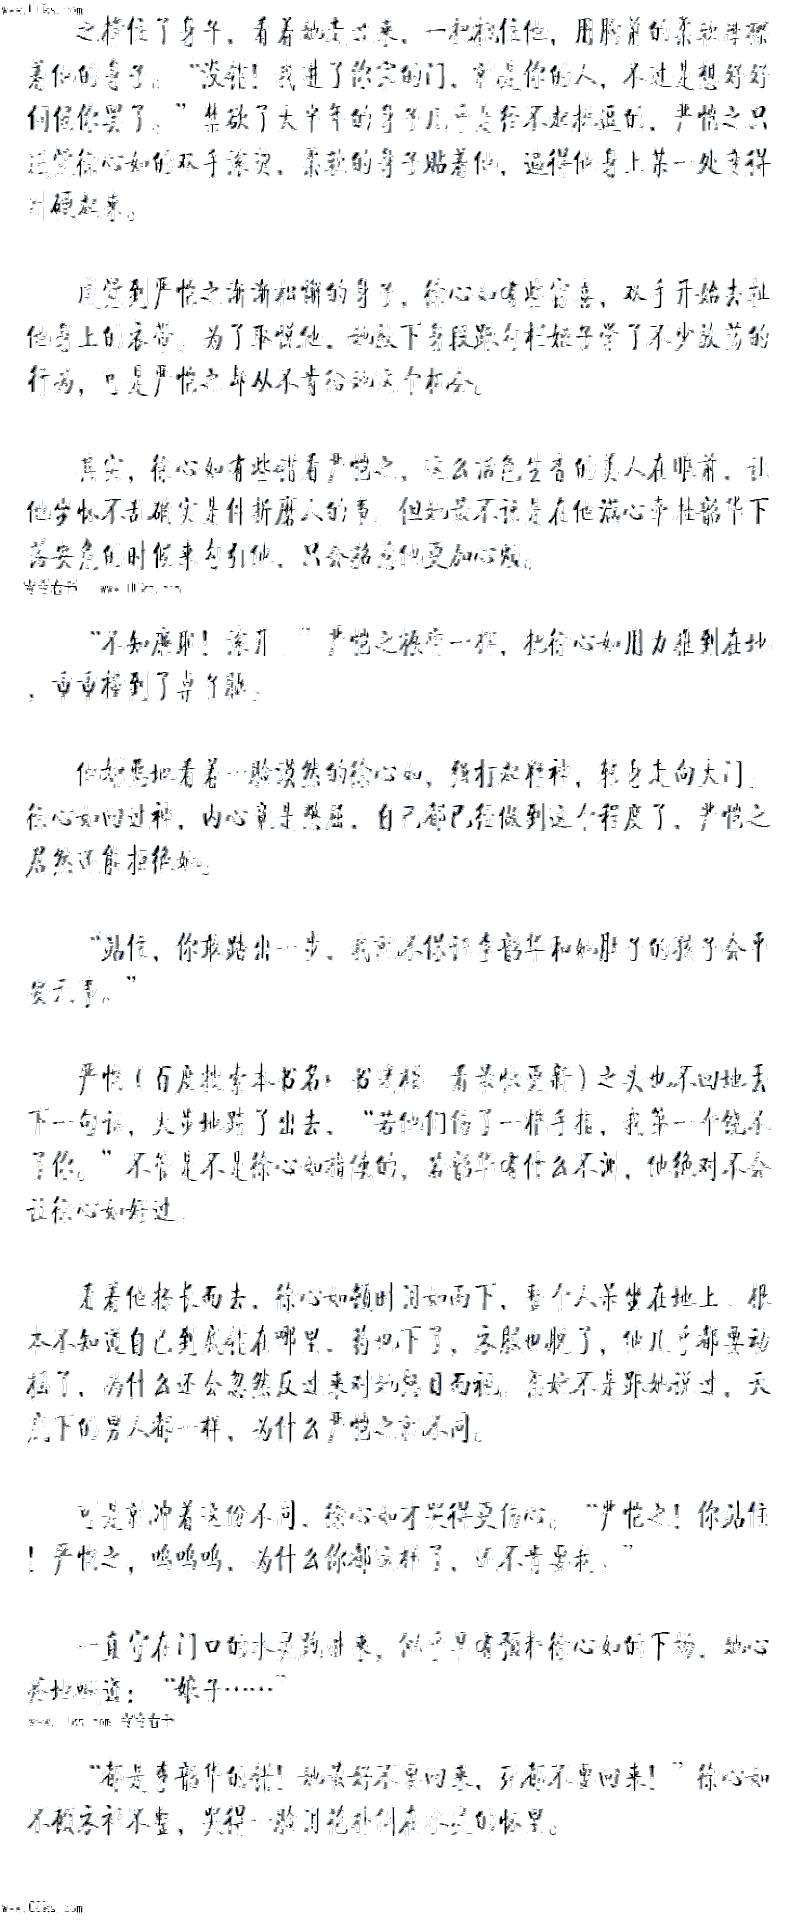 之撑住了身子，看着她走过来，一把抱住他，用胸前的柔软摩擦
着他的身子。“没错！我进了你家的门，就是你的人，不过是想好好
伺候你罢了。”禁欲了大半年的身子几乎是经不起挑逗的，严恺之只
觉徐心如的双手滚烫，柔软的身子贴着他，逼得他身上某一处变得
坚硬起来。
感觉到严恺之渐渐松懈的身子，徐心如有些窃喜，双手开始去扯
他身上的衣带。为了取悦他，她放下身段跟勾栏娘子学了不少放荡的
行为，可是严恺之却从不肯给她这个机会。
其实，徐心如有些错看严恺之，这么活色生香的美人在眼前，让
他坐怀不乱确实是件折磨人的事，但她最不该是在他满心牵挂韶华下
落安危的时候来勾引他，只会惹得他更加心烦。
“不知廉耻！滚开！”严恺之极怒一挥，把徐心如用力推到在地
，重重撞到了桌子脚。
他嫌恶地看着一脸漠然的徐心如，强打起精神，转身走向大门。
徐心如回过神，内心竟是憋屈，自己都已经做到这个程度了，严恺之
居然还能拒绝她。
“站住，你敢踏出一步，我就不保证李韶华和她肚子的孩子会平
安无事。”
严恺（百度搜索本书名+书书楼 看最快更新）之头也不回地丢
下一句话，大步地跨了出去，“若他们伤了一根手指，我第一个饶不
了你。”不管是不是徐心如指使的，若韶华有什么不测，他绝对不会
让徐心如好过。
看着他扬长而去，徐心如顿时泪如雨下，整个人呆坐在地上，根
本不知道自己到底错在哪里，药也下了，衣服也脱了，他几乎都要动
摇了，为什么还会忽然反过来对她怒目而视。柔娘不是跟她说过，天
底下的男人都一样，为什么严恺之就不同。
可是就冲着这份不同，徐心如才哭得更伤心。“严恺之！你站住
！严恺之，呜呜呜，为什么你都这样了，还不肯要我。”
一直守在门口的水灵跑进来，似乎早有预料徐心如的下场，她心
疼地喊道：“娘子……”
“都是李韶华的错！她最好不要回来，死都不要回来！”徐心如
不顾衣衫不整，哭得一脸泪花扑倒在水灵的怀里。